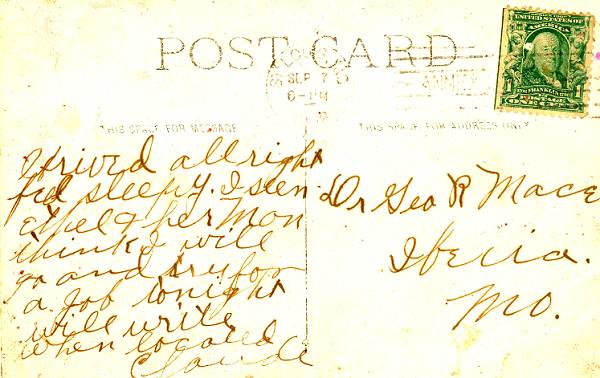 POST CARD
SEP 7
6-PM
UNITED STATES OF
AMERICA
1 FRANKLIN 1
ONE CENT
THIS SPACE FOR MESSAGE
THIS SPACE FOR ADDRESS ONLY
Arived allright
feel sleepy. I seen
Ethel & her Mon
think I will
go and try for
a Job tonight
will write
when located
Claude
Dr Geo R Mace
Iberia.
Mo.